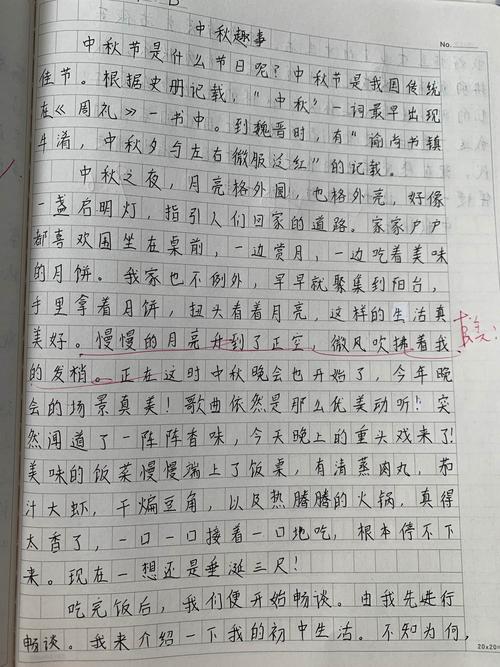 中秋趣事
No.
中秋节是什么节日呢？中秋节是我国传统
佳节。根据史册记载，"中秋"一词最早出现
在《周礼》一书中。到魏晋时，有"谕尚书镇
牛淆，中秋夕与左右微服泛红"的记载。
中秋之夜，月亮格外圆，也格外亮，好像
一盏启明灯，指引人们回家的道路。家家户户
都喜欢围坐在桌前，一边赏月，一边吃着美味
的月饼。我家也不例外，早早就聚集到阳台，
手里拿着月饼，扭头看着月亮，这样的生活真
美好。慢慢的月亮升到了正空，微风吹拂着我
的发梢。正在这时中秋晚会也开始了，今年晚
会的场景真美！歌曲依然是那么优美动听！突
然闻道了一阵阵香味，今天晚上的重头戏来了！
美味的饭菜慢慢端上了饭桌，有清蒸肉丸，茄
汁大虾，干煸豆角，以及热腾腾的火锅，真得
太香了，一口一口接着一口地吃，根本停不下
来。现在一想还是垂涎三尺！
吃完饭后，我们便开始畅谈。由我先进行
畅谈。我来介绍一下我的初中生活。不知为何，
20×20=